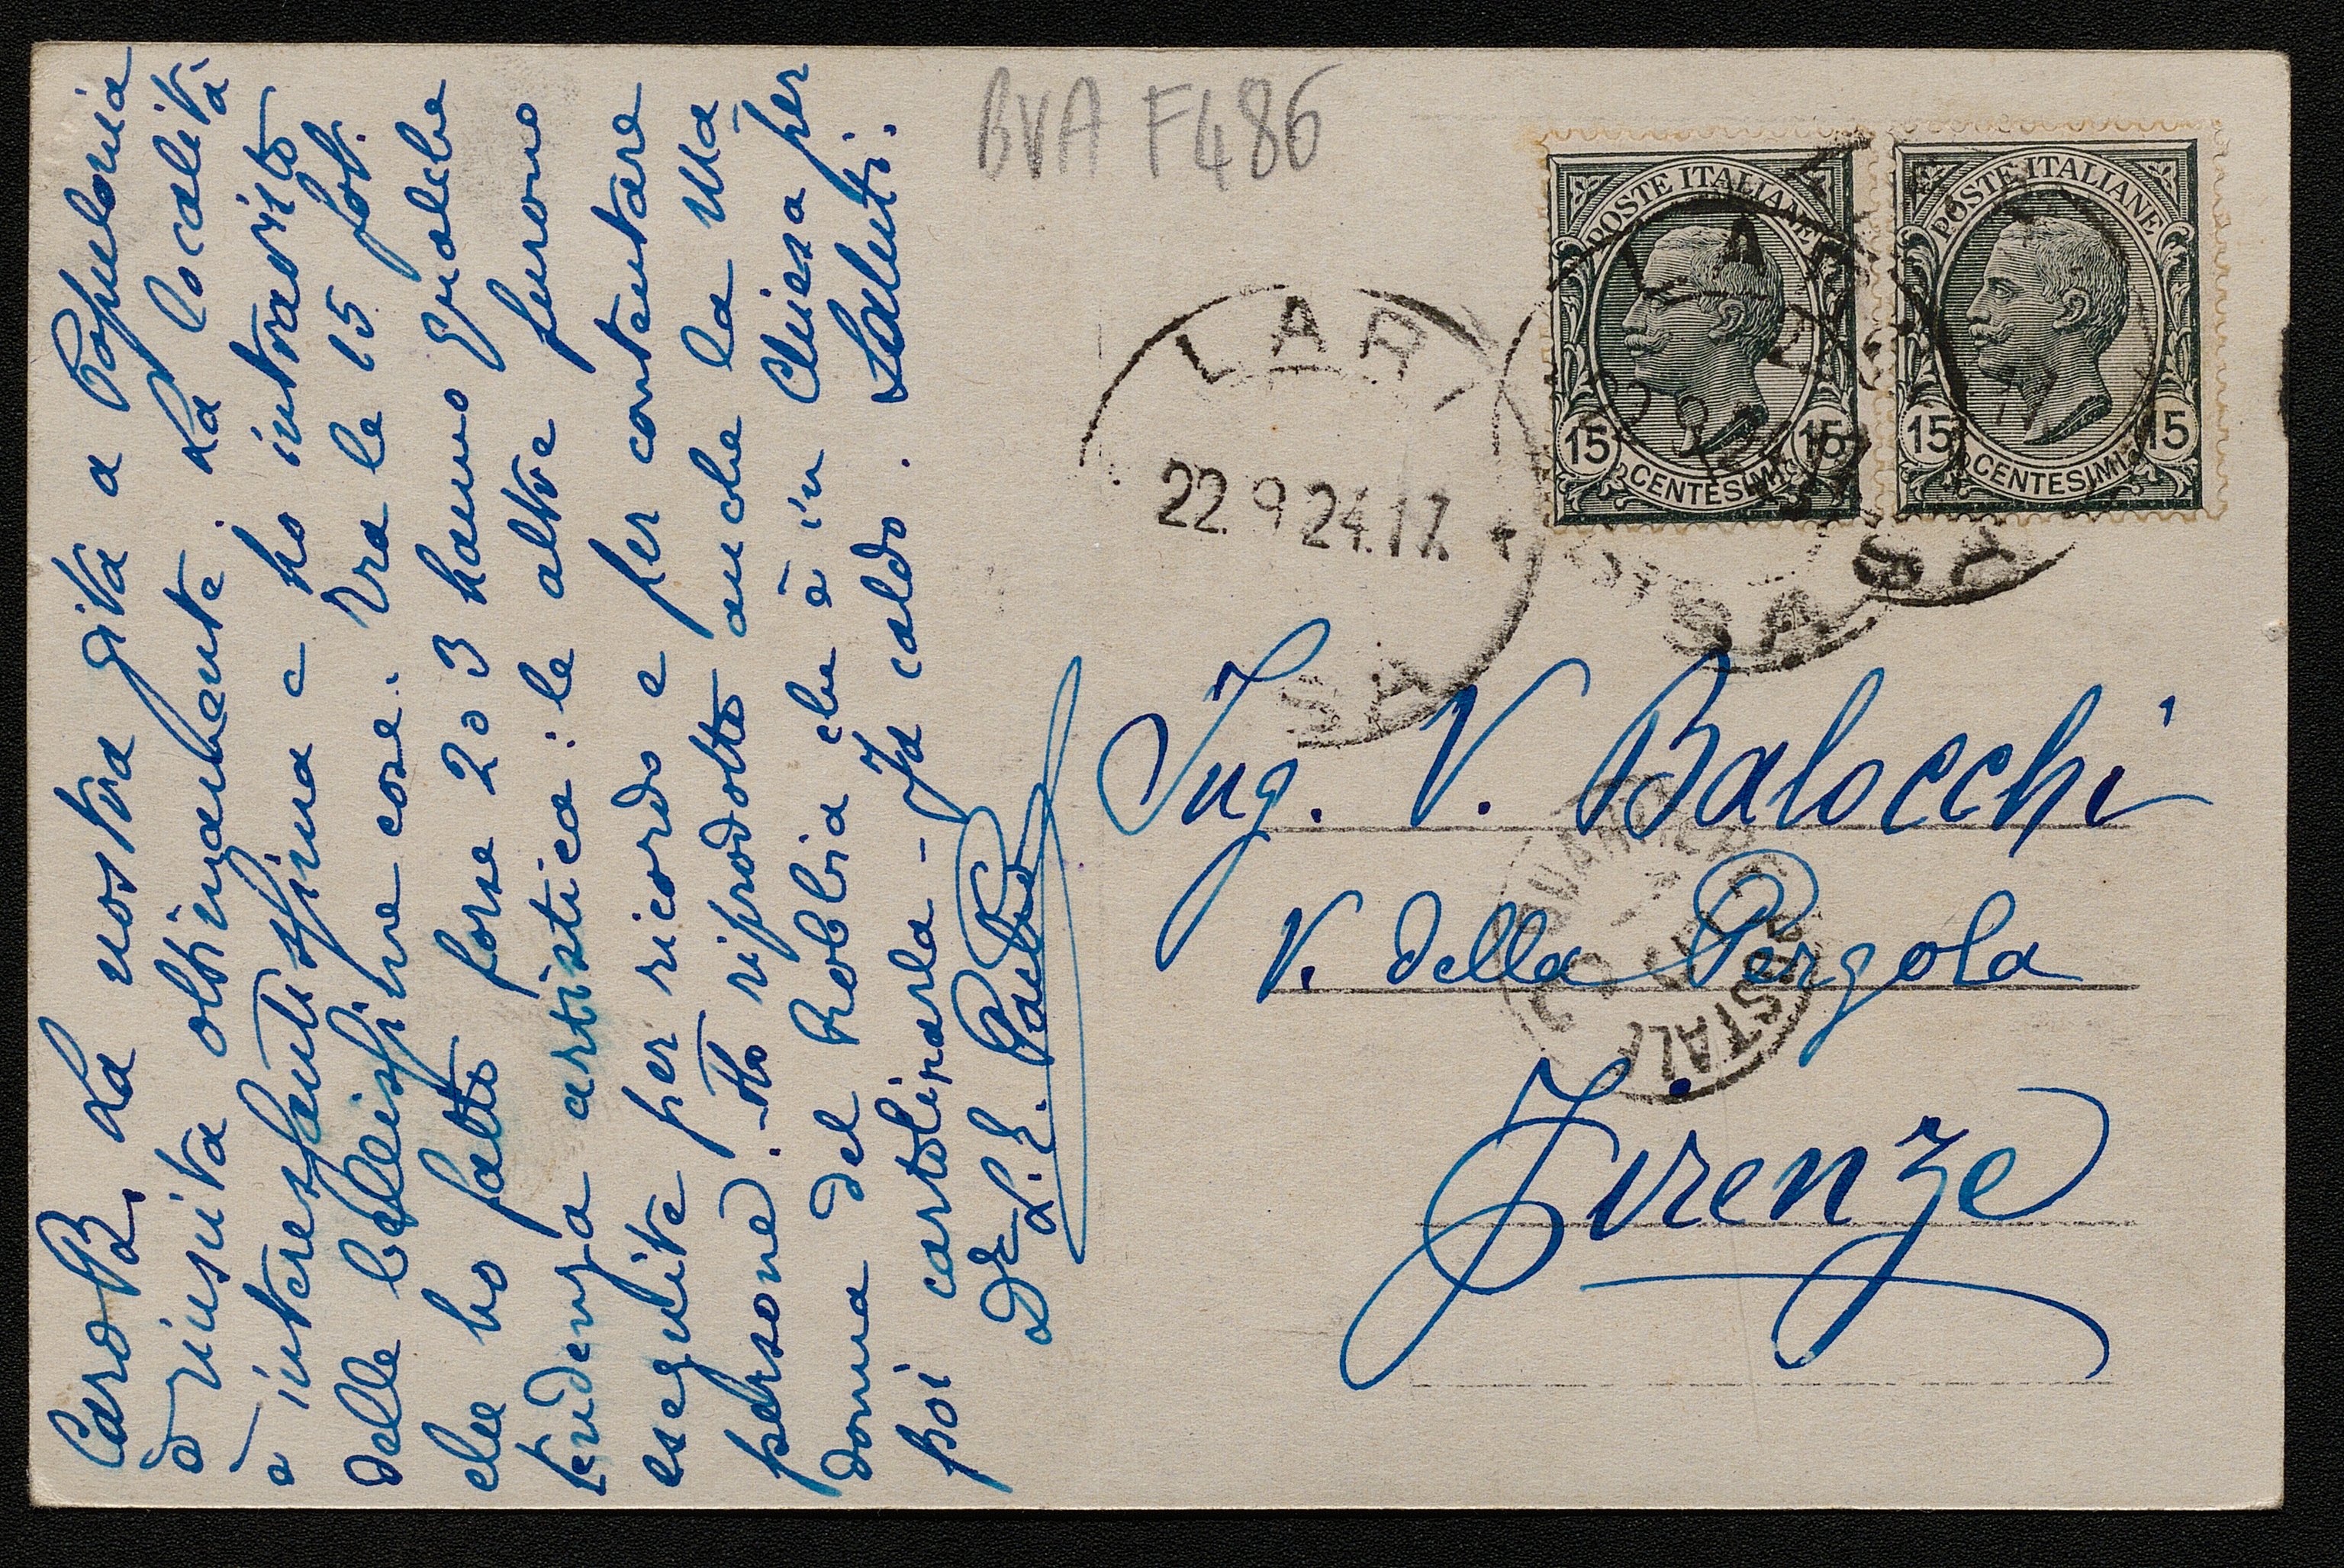 Caro B. La nostra gita a Populonia
è riuscita ottimamente. La località
è interessantissima e ho intravisto
delle bellissime cose. Tra le 15 fot.
che ho fatto forse 2 o 3 hanno qualche
tendenza artistica: le altre furono
eseguite per ricordo e per contentare
persone. Ho riprodotto anche la Ma
donna del Robbia che è in Chiesa per
poi cartolinarla - Fa caldo. Saluti.
BVA F486
POSTE ITALIANE
15 CENTESIMI 15
POSTE ITALIANE
15 CENTESIMI 15
LARI
22.9 24.17
PISA
Ing. V. Balocchi
V. della Pergola
Firenze
POSTALI